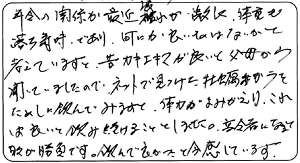 年令の関係か最近
落ち気味であり、何にか良いものはないかと
考えていますと、昔カキエキスが良いと父母から
聞いていましたので、ネットで見つけた牡蠣
ためしに飲んでみますと、体力がよみがえり、これ
は良いと飲み続けることとしました。高令者になると
が勝負です。飲んで良かったと今感じています。